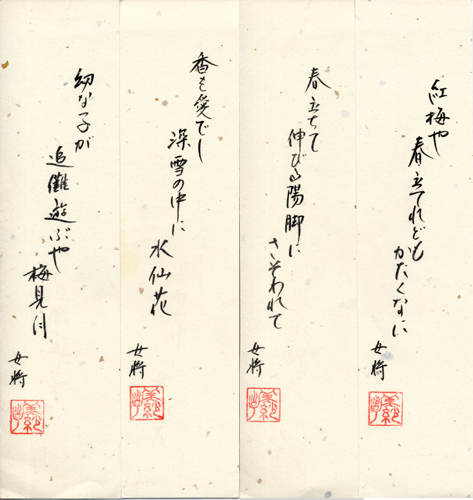 紅梅や
春立てれども
かたくなに
女将
春立ちて
伸びる陽脚に
さそわれて
女将
香も愛でし
深雪の中に
水仙花
女将
幼な子が
追儺遊ぶや
梅見月
女将